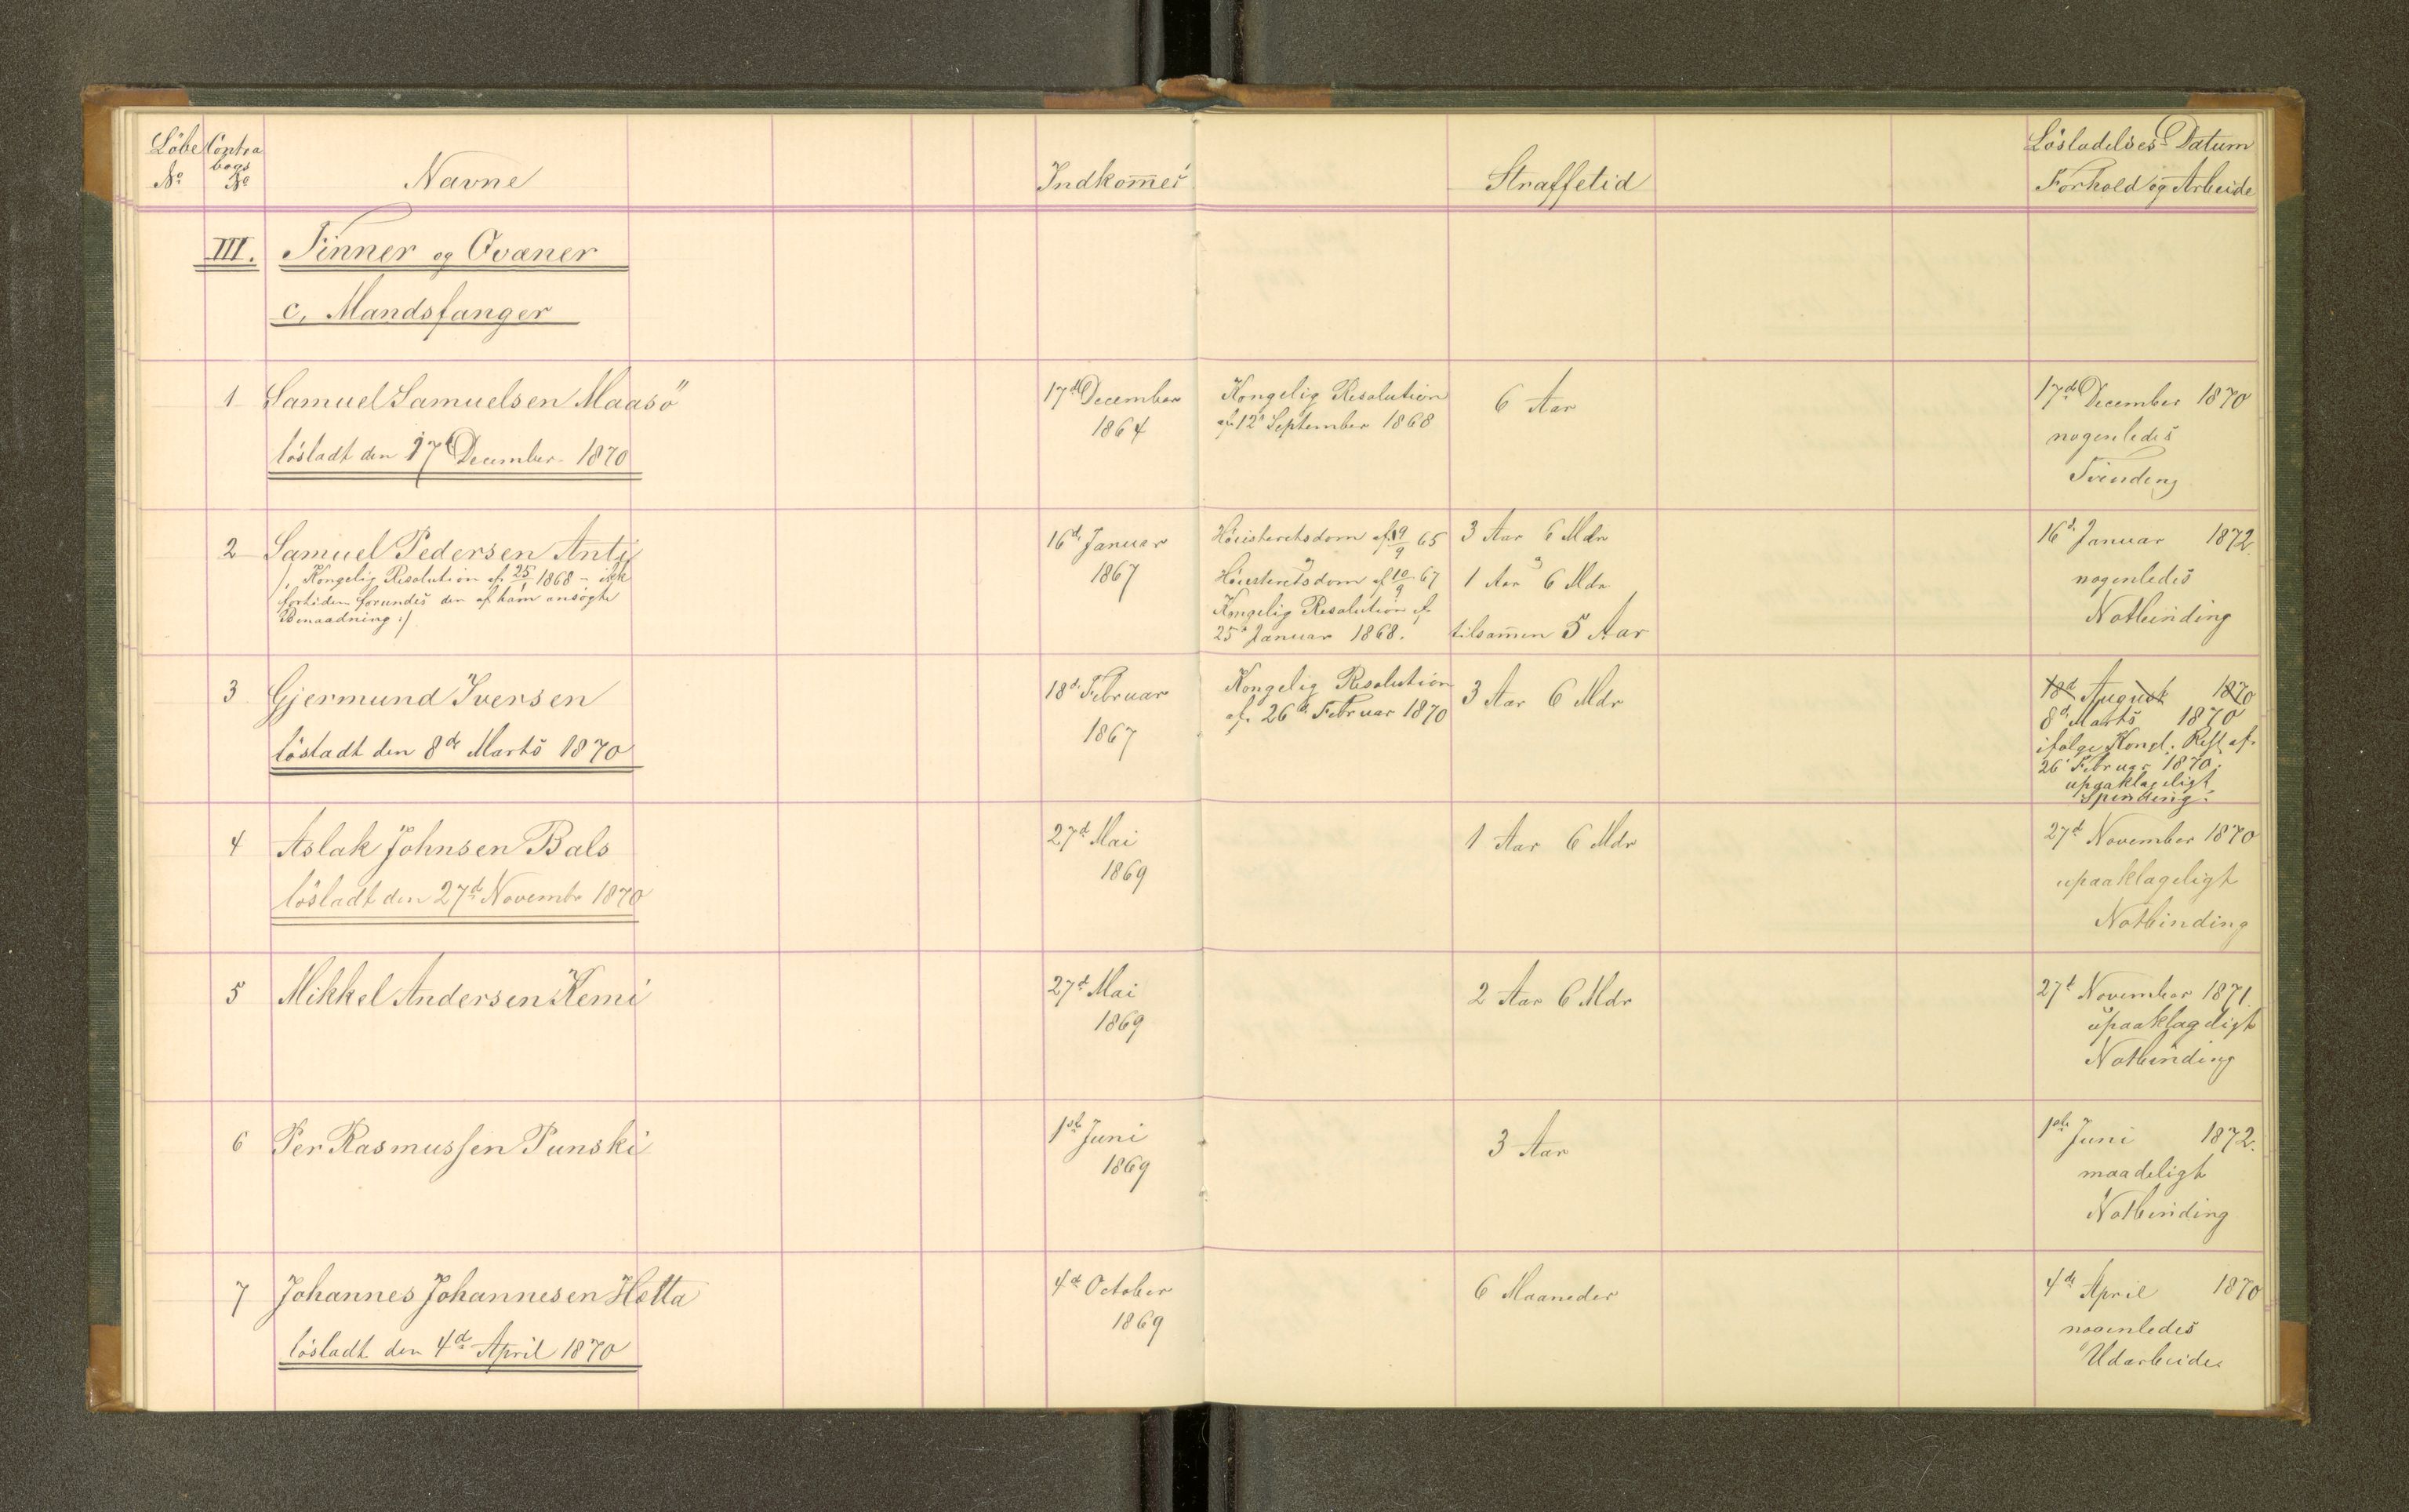 Löbe Contra Löslodelses Datum
bogs
No No Navne Indkom̄er Straffetid Forhold og Arbeide
III. Finner og Qvæner
c, Mandsfanger
1 Samuel Samuelsen Maasö 17d December Kongelig Resolution 6 Aar 17de December 1870
1864 af 12 September 1868 nogenledes
löslodt den 17 December 1870 Tvinding
2 Samuel Pedersen Anti 16d Januar Höiesteretsdom af 19/9 65 3 Aar 6 Mdr 16d Januar 1872.
/: Kongelig Resolution af 25/1 1868 - ikke 1867 " " nogenledes
fortiden forundes den af ham ansögte Höiesteretsdom af 10/9 67 1 Aar 6 Mdr Notbinding
Benaadning :/ Kongelig Resolution af
25 Januar 1868. tilsam̄en 5 Aar
3 Gjermund Iversen 18d Februar Kongelig Resolution 3 Aar 6 Mdr 18d August 1870
1867 af 26de Februar 1870 8d Marts 1870
löslodt den 8de Marts 1870 ifölge Kongl. Resl. af
26 Februar 1870.
upaaklageligt
Spinding.
4 Aslak Johnsen Bals 27d Mai 1 Aar 6 Mdr 27d November 1870
1869 upaaklageligt
löslodt den 27d Novembr 1870 Notbinding
5 Mikkel Andersen Kemi 27d Mai 2 Aar 6 Mdr 27d November 1871
1869 upaaklageligt
Notbinding
6 Per Rasmussen Punski 1ste Juni 3 Aar 1ste Juni 1872.
1869 maadeligt
Notbinding
7 Johannes Johannesen Hætta 4d October 6 Maaneder 4de April 1870
1869 nogenledes
löslodt den 4d April 1870 Udarbeide